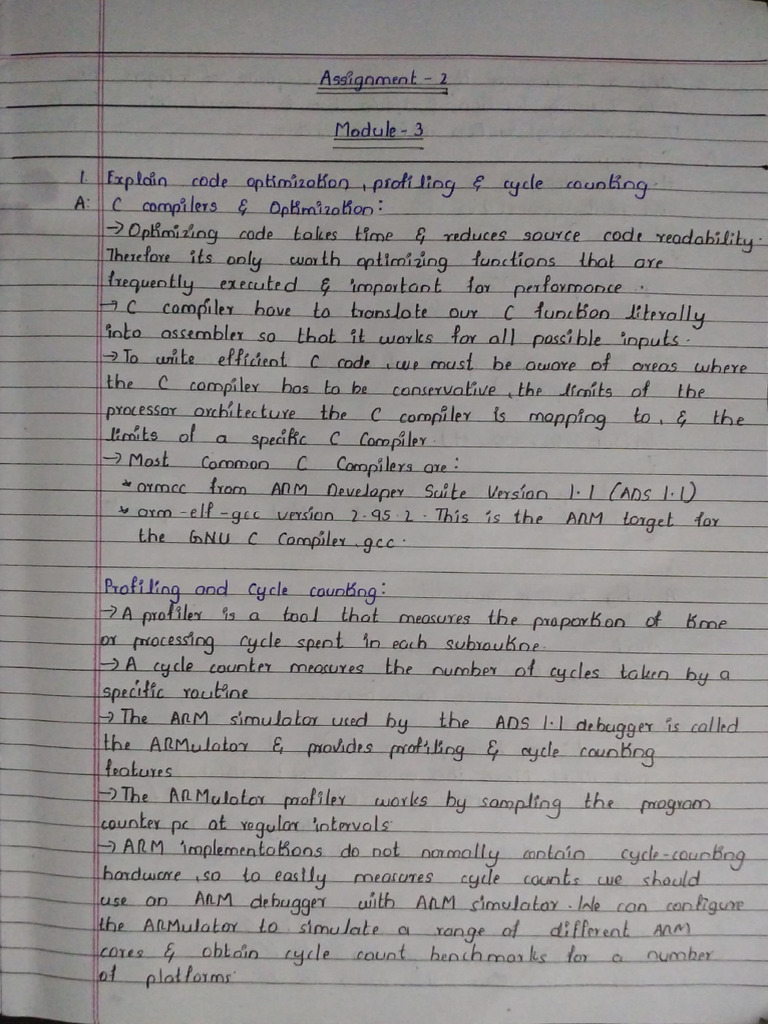 Assignment - 2
Module - 3
1. Explain code optimization, profiling & cycle counting.
A: C compilers & Optimization:
→ Optimizing code takes time & reduces source code readability.
Therefore its only worth optimizing functions that are
frequently executed & important for performance.
→ C compiler have to translate our C function literally
into assembler so that it works for all possible inputs.
→ To write efficient C code, we must be aware of areas where
the C compiler has to be conservative, the limits of the
processor architecture the C compiler is mapping to, & the
limits of a specific C Compiler.
→ Most Common C Compilers are:
* armcc from ARM Developer Suite Version 1.1 (ADS 1.1)
* arm-elf-gcc version 2.95.2. This is the ARM target for
the GNU C Compiler, gcc.
Profiling and Cycle counting:
→ A profiler is a tool that measures the proportion of time
or processing cycle spent in each subroutine.
→ A cycle counter measures the number of cycles taken by a
specific routine
→ The ARM simulator used by the ADS 1.1 debugger is called
the ARMulator & provides profiling & cycle counting
features
→ The ARMulator profiler works by sampling the program
counter pc at regular intervals
→ ARM implementations do not normally contain cycle-counting
hardware, so to easily measures cycle counts we should
use an ARM debugger with ARM simulator. We can configure
the ARMulator to simulate a range of different ARM
cores & obtain cycle count benchmarks for a number
of platforms.